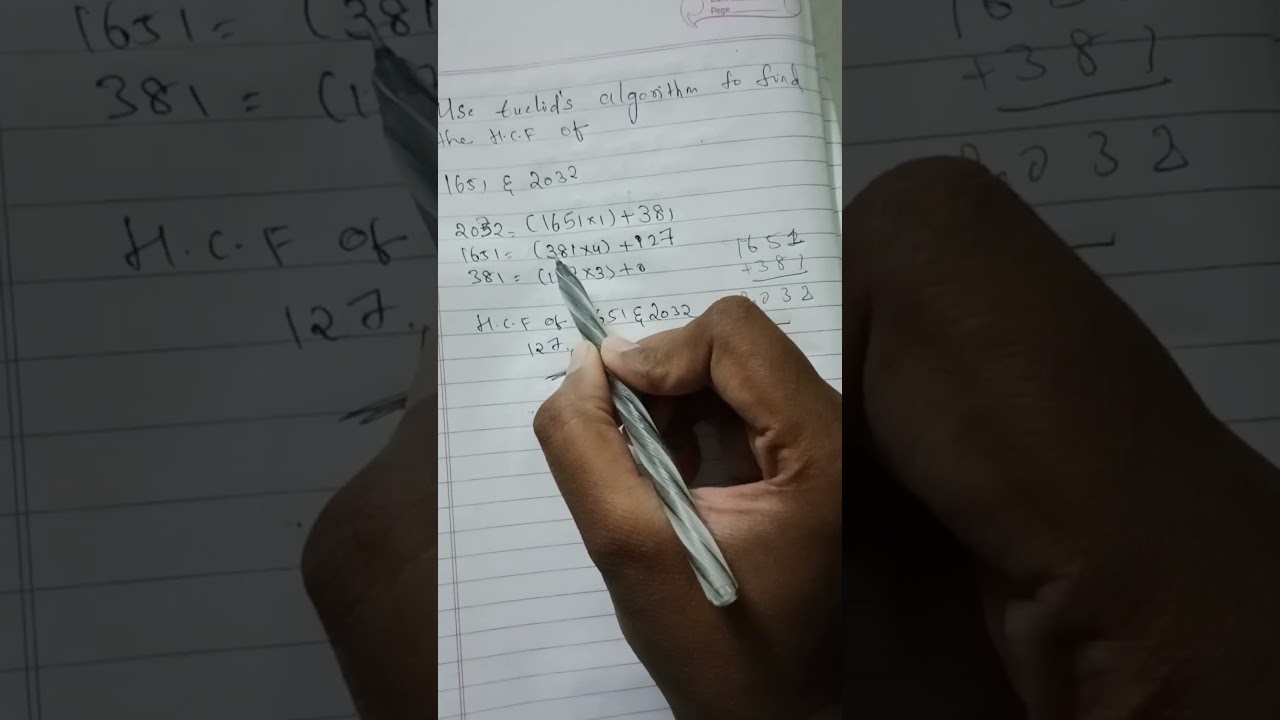 Page
Use Euclid's algorithm to find
the H.C.F of
1651 & 2032
2032 = (1651×1) + 381
1651 = (381×4) + 127
381 = (1 ×3) + 0
H.C.F of 651 & 2032
127,
1651
+381
2032
1651 = (381
381 = (1
H.C.F of
127,
+381
032